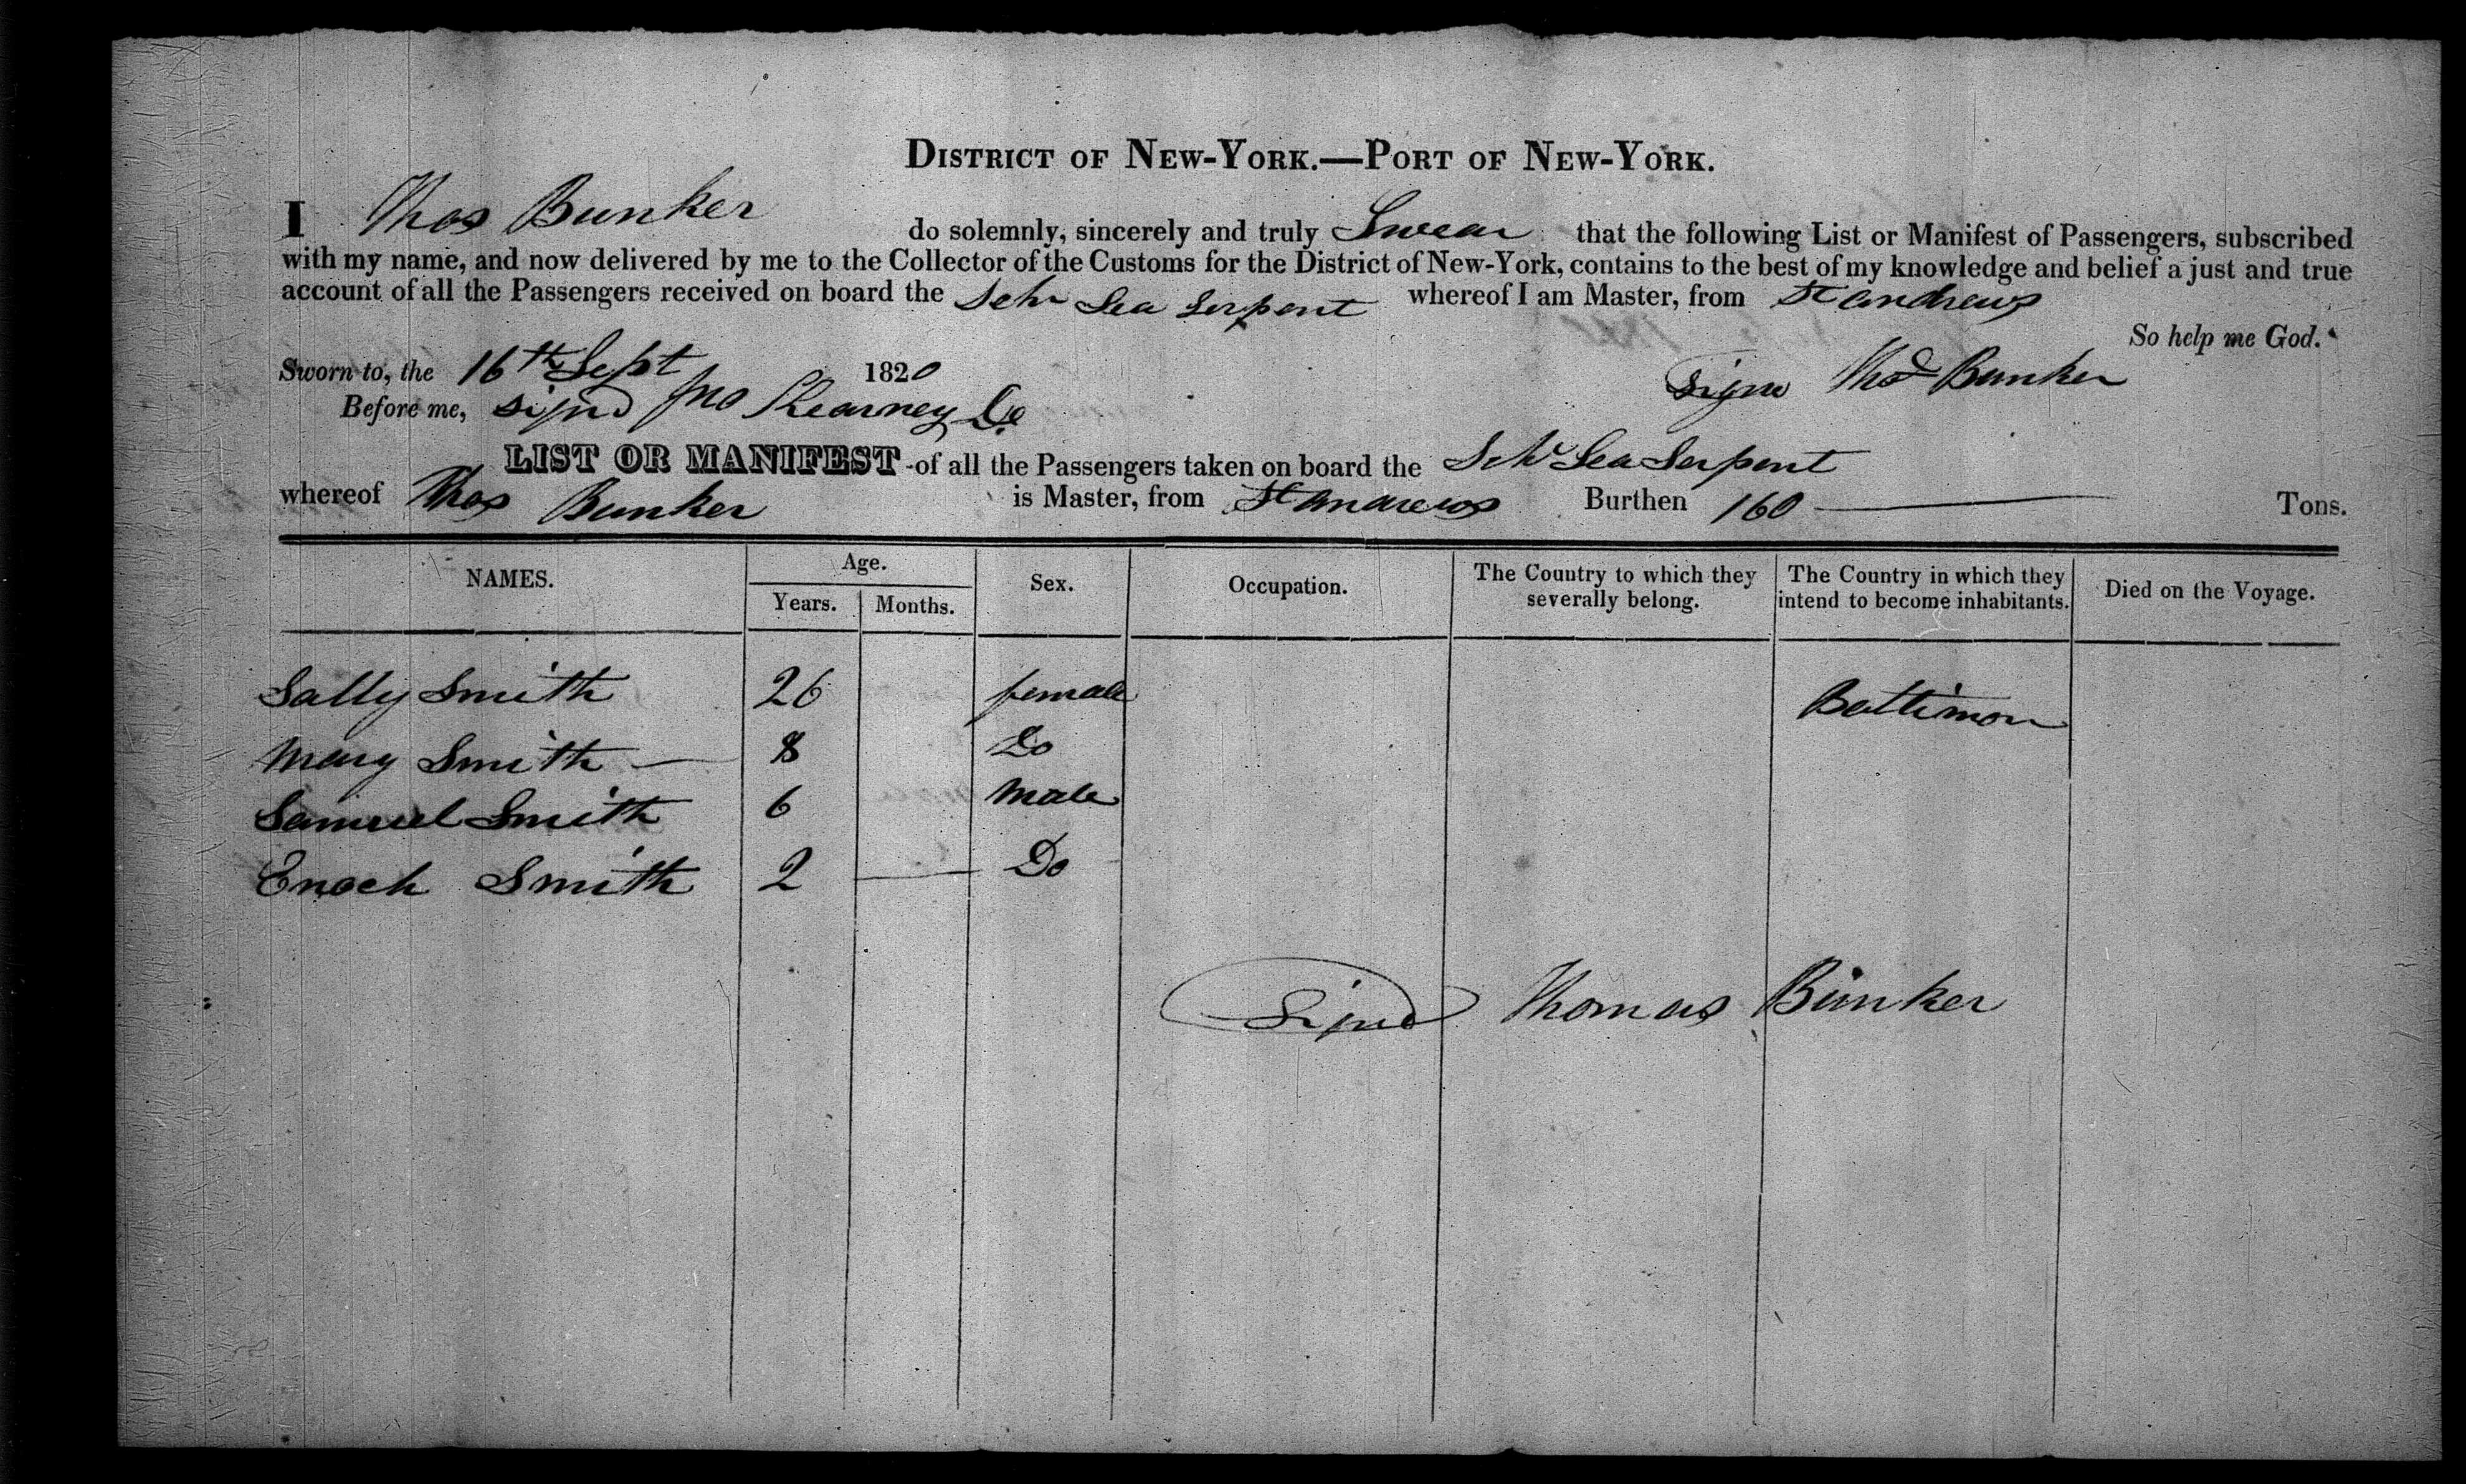 DISTRICT OF NEW-YORK.—PORT OF NEW-YORK.
I Thos Bunker do solemnly, sincerely and truly Swear that the following List or Manifest of Passengers, subscribed
with my name, and now delivered by me to the Collector of the Customs for the District of New-York, contains to the best of my knowledge and belief a just and true
account of all the Passengers received on board the Schr Sea Serpent whereof I am Master, from St Andrews
So help me God.
Sworn to, the 16th Sept 1820
Signd Thos Bunker
Before me, signd Jno Kearney
LIST OR MANIFEST of all the Passengers taken on board the Schr Sea Serpent
whereof Thos Bunker is Master, from St Andrews Burthen 160 Tons.
NAMES. Age. Years. Months. Sex. Occupation. The Country to which they severally belong. The Country in which they intend to become inhabitants. Died on the Voyage.
Sally Smith 26 female Baltimore
Mary Smith — 8 Do
Samuel Smith 6 Male
Enoch Smith 2 — Do
Signd Thomas Bunker